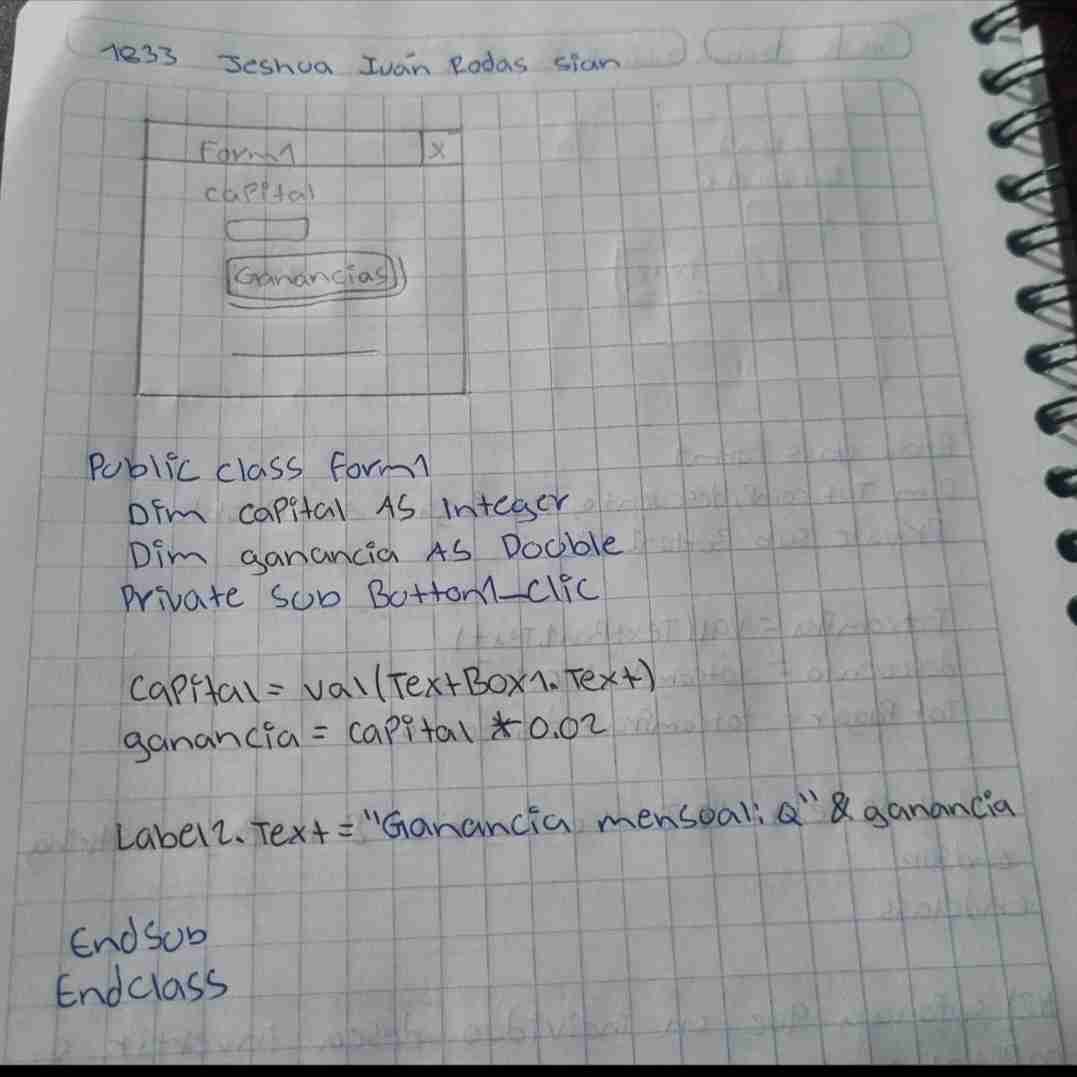 1833 Jeshua Iván Rodas sian
Form1 X
capital
Ganancias
Public class Form1
Dim capital As Integer
Dim ganancia As Double
Private Sub Button1_Clic
capital = val(TextBox1.Text)
ganancia = capital * 0.02
Label2.Text = "Ganancia mensual: Q" & ganancia
EndSub
Endclass